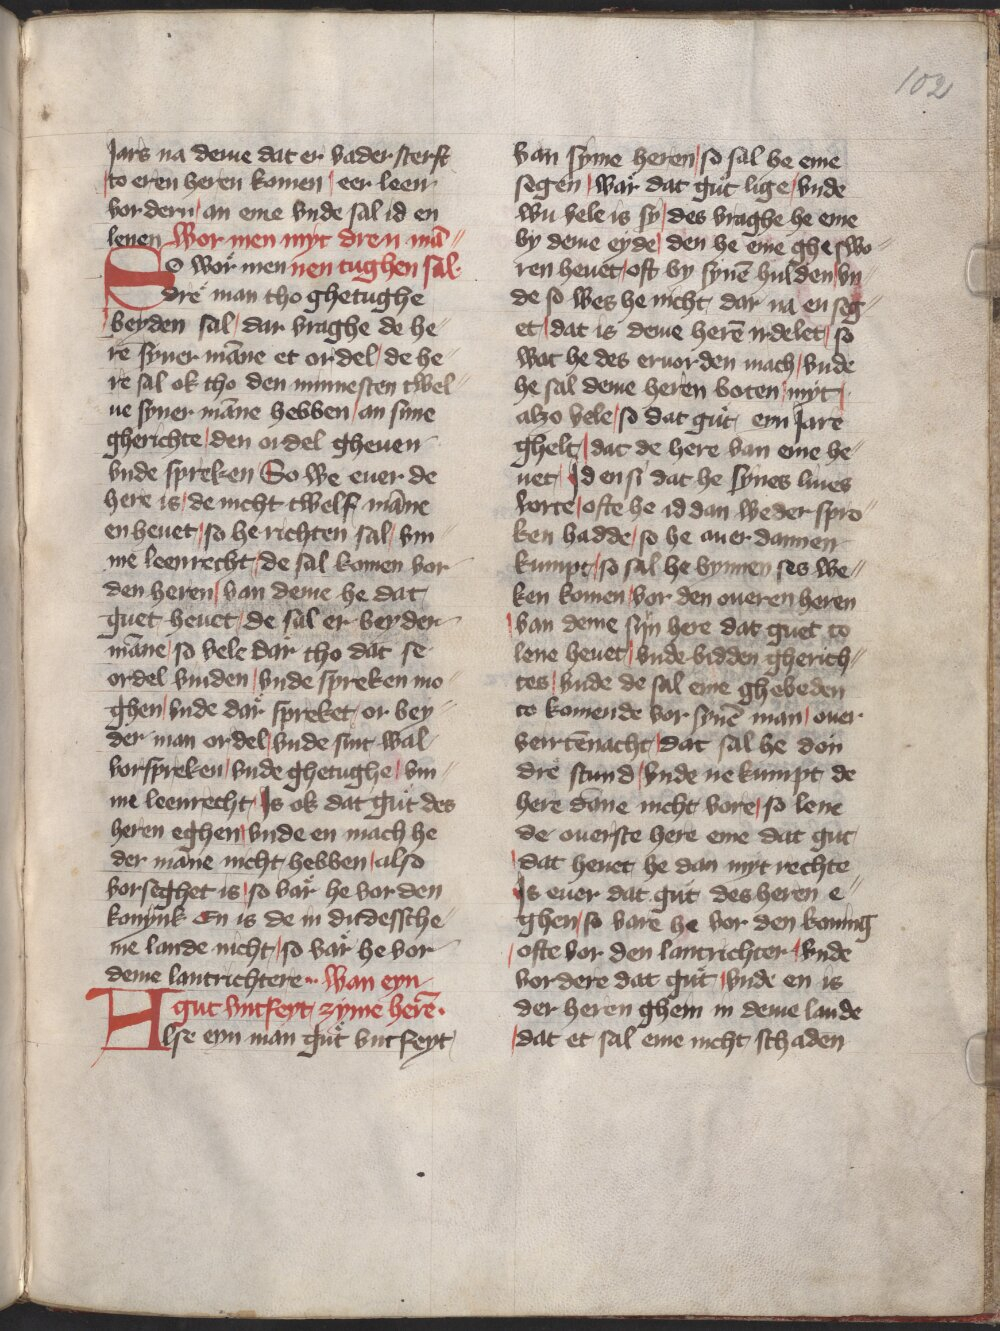 102
Jars na deme dat er vader sterft
to eren heren komen / eer leen
vordern / an eme vnde sal id en
lenen Wor men myt dren mā〃
So wor men nen tughen sal.
dre man tho ghetughe
beyden sal / dar vraghe de he〃
re syner māne et ordel / de he〃
re sal ok tho den minnesten twel〃
ue syner māne hebben / an sime
gherichte / den ordel gheuen
vnde spreken So we euer de
here is / de nicht twelf māne
en heuet / so he richten sal / vm〃
me leenrecht / de sal komen vor
den heren / van deme he dat
guet heuet / de sal er beyder
māne / so vele dar tho dat se
ordel vinden / vnde spreken mo〃
ghen / vnde dar spreket / or bey〃
der man ordel / vnde sint wal
vorspreken / vnde ghetughe / vm〃
me leenrecht / Is ok dat gut des
heren eghen / vnde en mach he
der māne nicht hebben / also
vorseghet is / so var he vor den
konynk En is de in dudessche〃
me lande nicht / so var he vor
deme lantrichtere .. Wan eyn
gut vntfeyt / zyme herē.
Alse eyn man gut vntfeyt
van syme heren / so sal he eme
segen / war dat gut lige / vnde
wu vele is sy / des vraghe he eme
by deme eyde / den he eme ghe swo〃
ren heuet / oft by synē hulden / vn〃
de so wes he nicht dar na en seg〃
et / dat is deme herē irdelet / so
wat he des eruorden mach / vnde
he sal deme heren boten / myt /
alzo vele / so dat gut eyn Jare
ghelt / dat de here van eme he〃
uet / Id en si dat he synes liues
vorte / ofte he id dan weder spro〃
ken hadde / so he auer dannen
kumpt / so sal he bynnen ses we〃
ken komen / vor den oueren heren
/ van deme sijn here dat guet to
lene heuet / vnde bidden gherich〃
tes / vnde de sal eme ghebeden
to komende vor synē man / ouer
veirtēnacht / dat sal he don
dre stund / vnde ne kumpt de
here dāne nicht vore / so lene
de ouerste here eme dat gut
/ dat heuet he dan myt rechte
Is euer dat gut des heren e〃
ghen / so vare he vor den koning
/ ofte vor den lantrichter / vnde
vordere dat gut / vnde en is
der heren ghein in deme lande
/ dat et sal eme nicht schaden